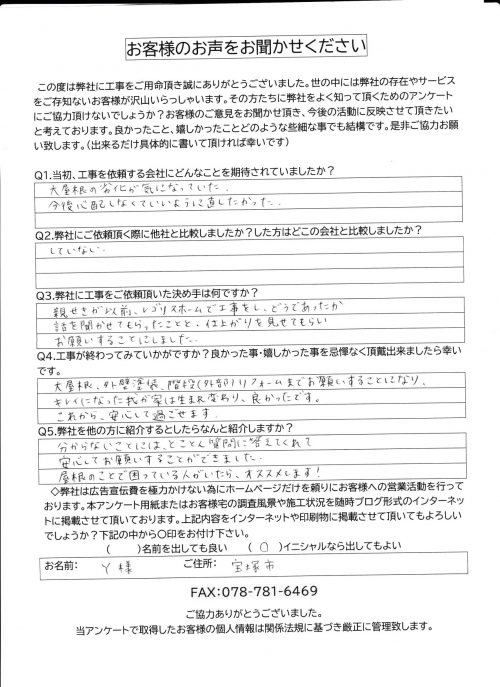 お客様のお声をお聞かせください
この度は弊社に工事をご用命頂き誠にありがとうございました。世の中には弊社の存在やサービス
をご存知ないお客様が沢山いらっしゃいます。その方たちに弊社をよく知って頂くためのアンケート
にご協力頂けないでしょうか?お客様のご意見をお聞かせ頂き、今後の活動に反映させて頂きたい
と考えております。良かったこと、嬉しかったことどのような些細な事でも結構です。是非ご協力お願
い致します。(出来るだけ具体的に書いて頂ければ幸いです)
Q1.当初、工事を依頼する会社にどんなことを期待されていましたか?
大屋根の劣化が気になっていた。
今後心配しなくていいように直したかった。
Q2.弊社にご依頼頂く際に他社と比較しましたか?した方はどこの会社と比較しましたか?
していない。
Q3.弊社に工事をご依頼頂いた決め手は何ですか?
親せきが以前、レゴリスホームで工事をし、どうであったか
話を聞かせてもらったことと、仕上がりを見せてもらい
お願いすることにしました。
Q4.工事が終わってみていかがですか?良かった事・嬉しかった事を忌憚なく頂戴出来ましたら幸い
です。
大屋根、外壁塗装、階段(外部)リフォームまでお願いすることになり、
キレイになった我が家は生まれ変わり、良かったです。
これから、安心して過ごせます。
Q5.弊社を他の方に紹介するとしたらなんと紹介しますか?
分からないことには、とことん質問に答えてくれて
安心してお願いすることができました。
屋根のことで困っている人がいたら、オススメします!
◇弊社は広告宣伝費を極力かけない為にホームページだけを頼りにお客様への営業活動を行って
おります。本アンケート用紙またはお客様宅の調査風景や施工状況を随時ブログ形式のインターネッ
トに掲載させて頂いております。上記内容をインターネットや印刷物に掲載させて頂いてもよろしい
でしょうか?下記の中から〇印をお付け下さい。
( )名前を出しても良い (〇)イニシャルなら出してもよい
お名前: Y様 ご住所: 宝塚市
FAX:078-781-6469
ご協力ありがとうございました。
当アンケートで取得したお客様の個人情報は関係法規に基づき厳正に管理致します。